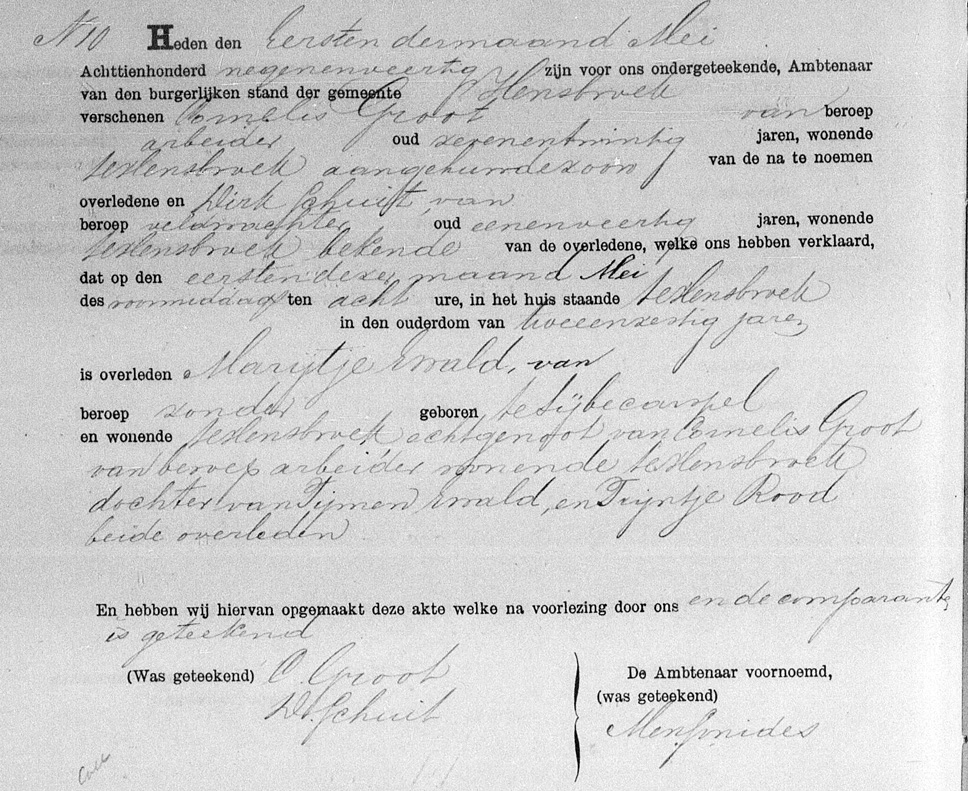 N 10 Heden den Eersten dermaand Mei
Achttienhonderd negenenveertig zijn voor ons ondergeteekende, Ambtenaar
van den burgerlijken stand der gemeente Hensbroek
verschenen Cornelis Groot van beroep
arbeider oud zevenentwintig jaren, wonende
te Hensbroek aangehuwdezoon van de na te noemen
overledene en Dirk Schuijt, van
beroep veldwachter oud eenenveertig jaren, wonende
te Hensbroek bekende van de overledene, welke ons hebben verklaard,
dat op den eersten dezer maand Mei
des voormiddags ten acht ure, in het huis staande te Hensbroek
in den ouderdom van tweeenzestig jaren
is overleden Marijtje Ewald, van
beroep zonder geboren te Sijbecarspel
en wonende te Hensbroek echtgenoot van Cornelis Groot
van beroep arbeider wonende te Hensbroek
dochter van Tijmen Ewald, en Trijntje Rood
beide overleden
En hebben wij hiervan opgemaakt deze akte welke na voorlezing door ons en de comparanten
is geteekend
(Was geteekend) C. Groot
D. Schuit
De Ambtenaar voornoemd,
(was geteekend)
Mensonides